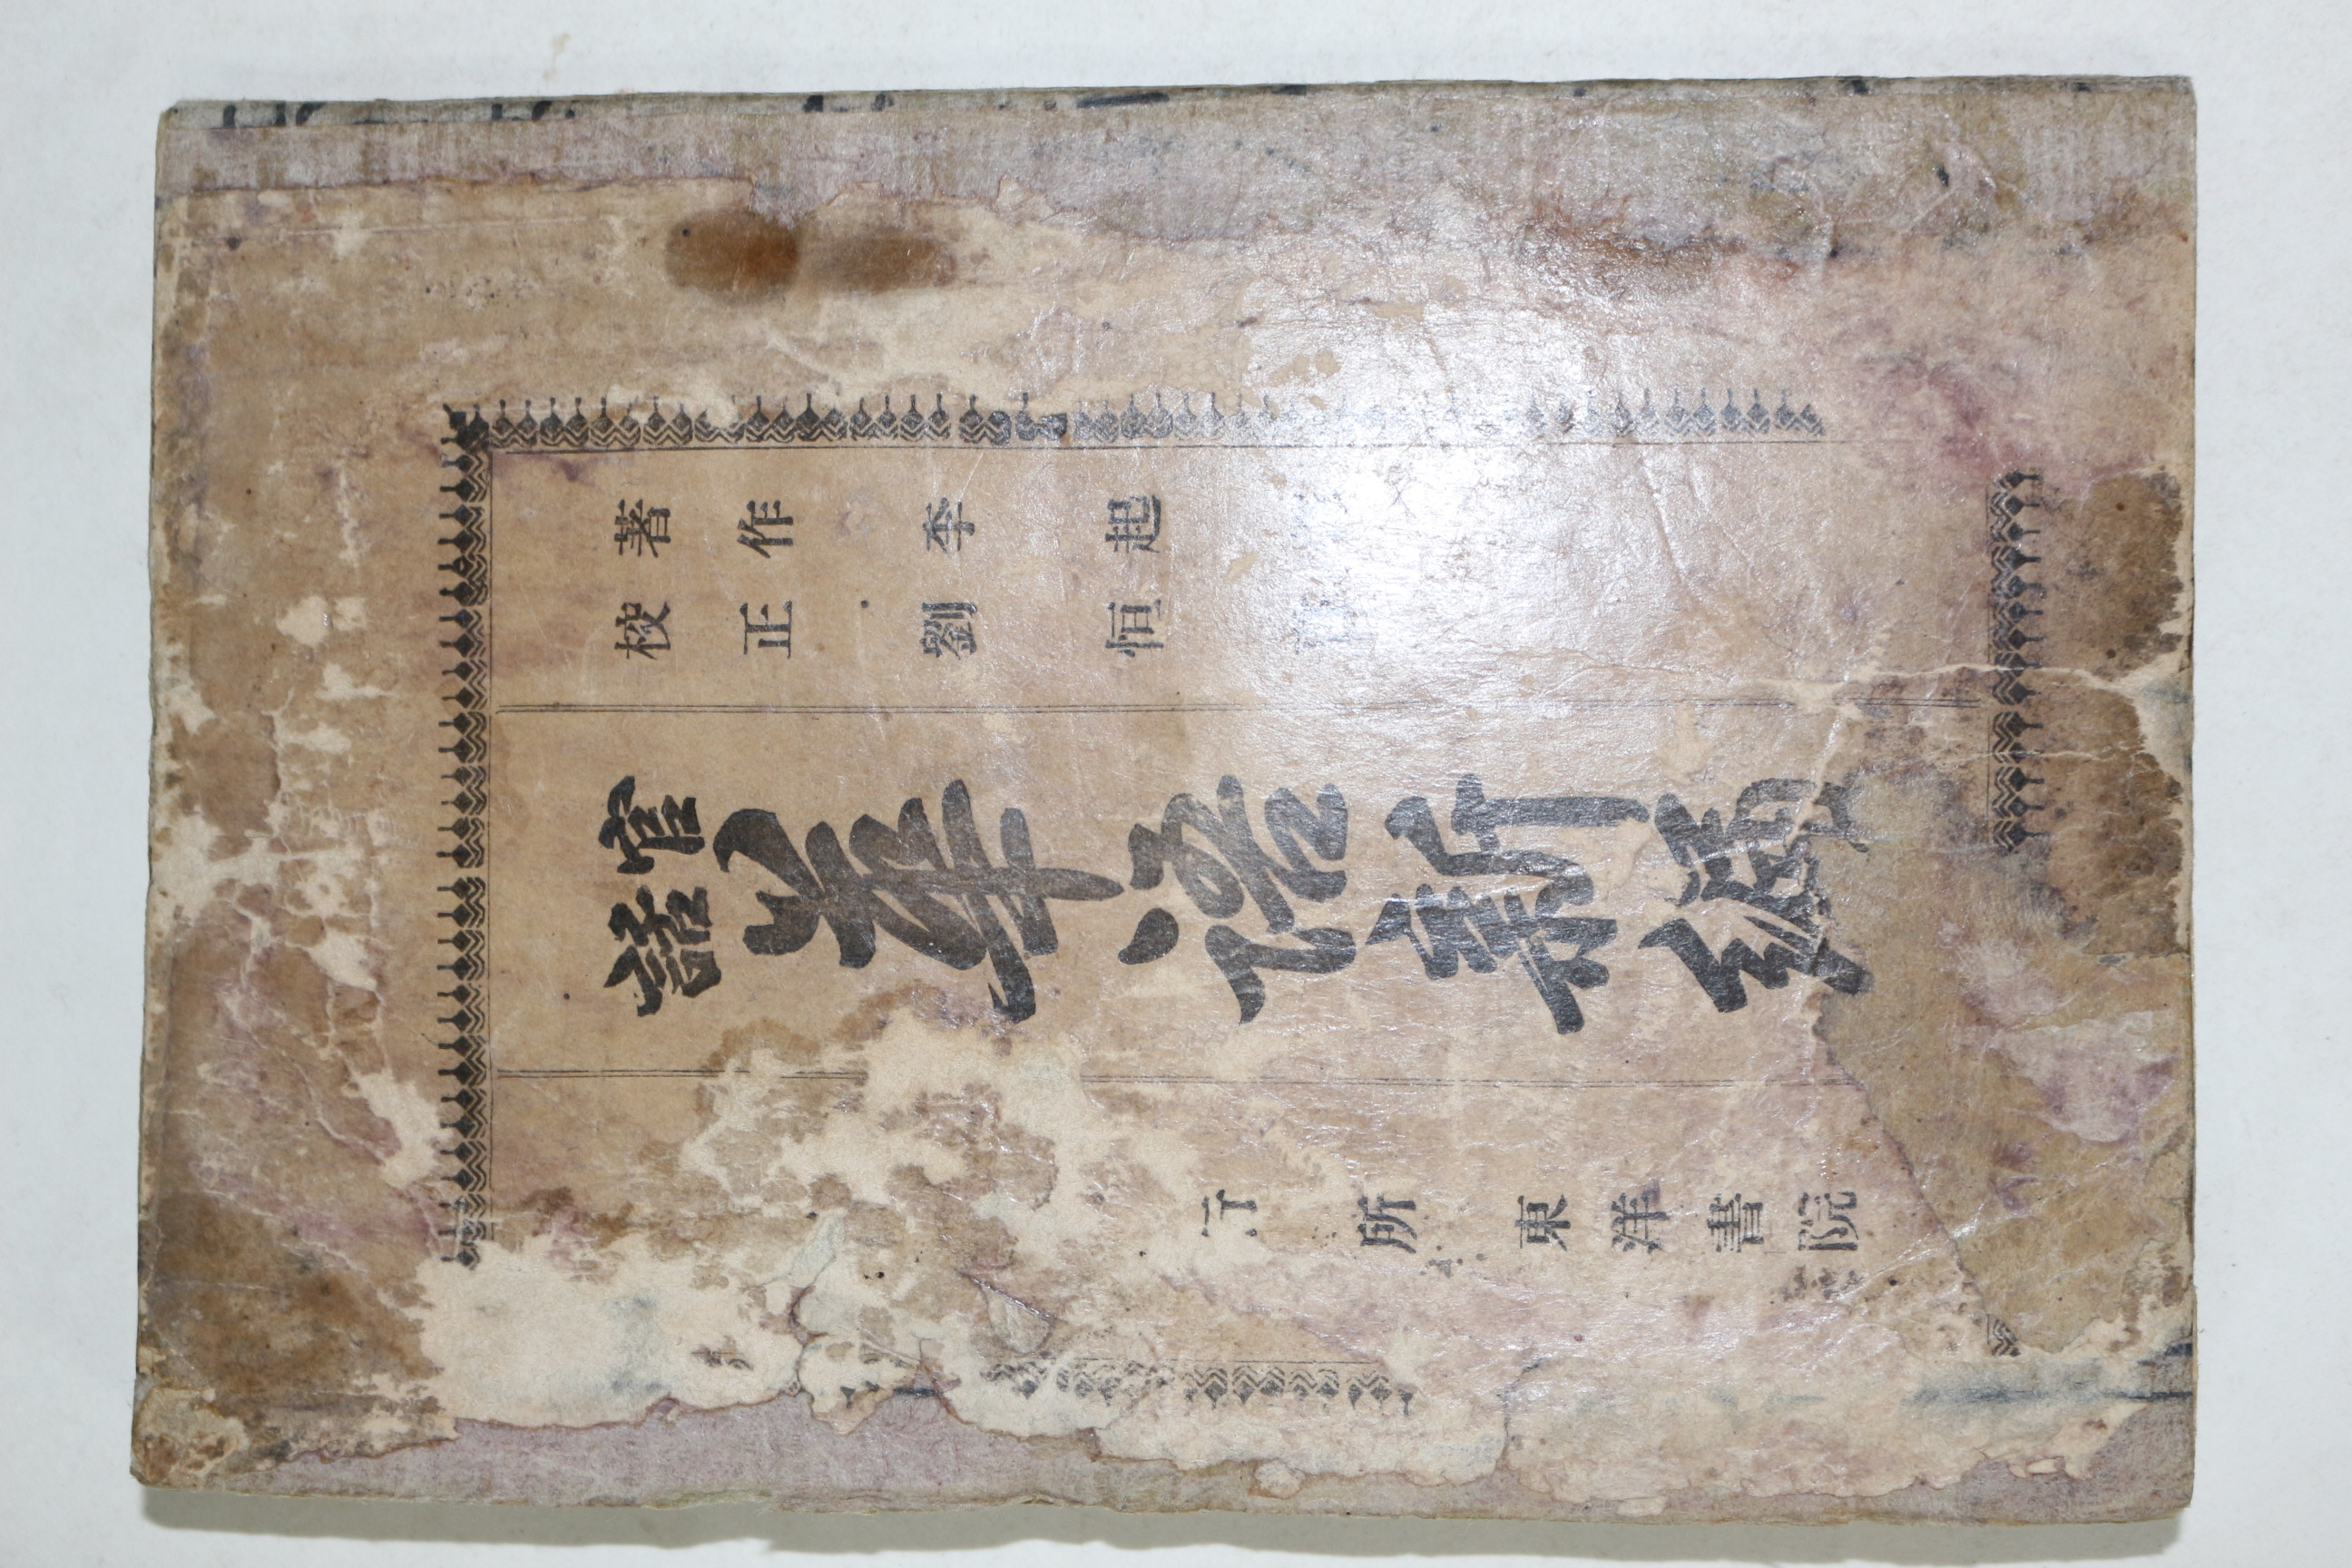 著作 李起
校正 劉恒
官話 華語新編
行所 東洋書院